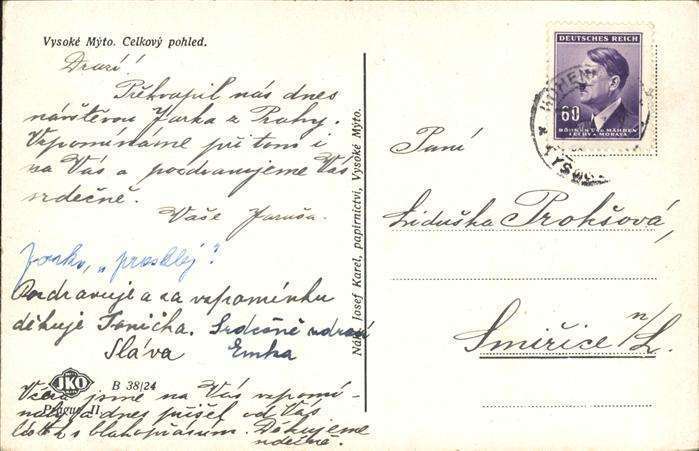 Vysoké Mýto. Celkový pohled.
Drazí!
Překvapil nás dnes
návštěvou Jarka z Prahy.
Vzpomínáme při tom i
na Vás a pozdravujeme Vás
srdečně.
Vaše Jaruša.
Pozdravuje a za vzpomínku
děkuje Tonička. Srdečně zdraví
Sláva Emka
JKO
B 38/24
Prague II
Včera jsme na Vás vzpomí-
naly a dnes přišel od Vás
lístek s blahopřáním. Děkujeme
srdečně.
Nákl. Josef Karel, papírnictví, Vysoké Mýto.
DEUTSCHES REICH
60
BÖHMEN U. MÄHREN
ČECHY A MORAVA
Paní
Liduška Prokšová,
Smiřice n/L.